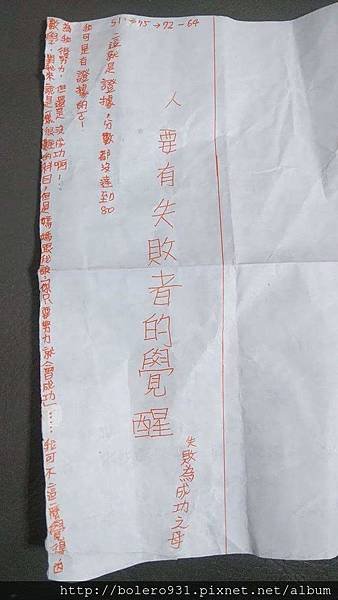 人要有失敗者的覺醒
失敗為成功之母
數學，對我來說就是一樣很難的科目，但是媽媽跟我說「你只要努力就會成功」..... 我可不這麼覺得因
為我很努力，但還是沒成功啊!...
我可是有證據的ㄛ!
這就是證據，分數都沒達到80
51→75→72→64
http://bolero931.pixnet.net/album